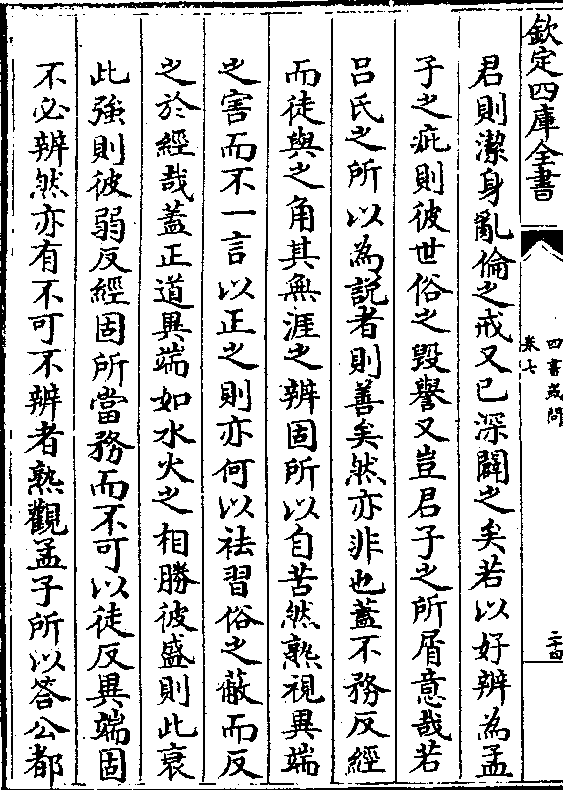 欽定四庫全書
四書或問
卷七
二十四
君則潔身亂倫之戒又已深闢之矣若以好辨為孟
子之疵則彼世俗之毀譽又豈君子之所屑意哉若
吕氏之所以為説者則善矣然亦非也蓋不務反經
而徒與之角其無涯之辨固所以自苦然熟視異端
之害而不一言以正之則亦何以袪習俗之蔽而反
之於經哉蓋正道異端如水火之相勝彼盛則此衰
此強則彼弱反經固所當務而不可以徒反異端固
不必辨然亦有不可不辨者熟觀孟子所以答公都